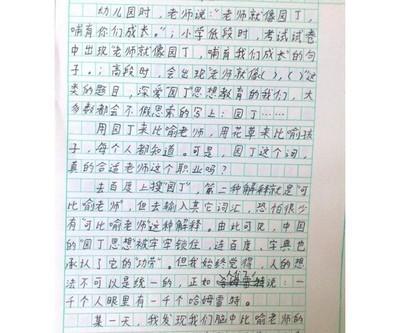 幼儿园时，老师说："老师就像园丁，
哺育你们成长。"；小学低段时，考试试卷
中出现"老师就像园丁，哺育我们成长"的句
子。；高段时，会出现"老师就像( )，( )"这
类的题目，深爱"园丁"思想教育的我们，大
多数都会不假思索的写上：园丁……
用园丁来比喻老师，用花草来比喻孩
子，每个人都知道。可是，园丁这个词，
真的合适老师这个职业吗？
去百度上搜"园丁"，第二种解释就是"可
比喻老师"，但去输入其它词汇，恐怕很少
有"可比喻老师"这种解释。由此可见，中国
的"园丁思想"被牢牢锁住，连百度、字典也
承认了它的"功劳"。但我始终觉得，人的想
法不可以是统一的，正如 说：一
千个人眼里有一千个哈姆雷特。
某一天，我发现我们脑中比喻老师的